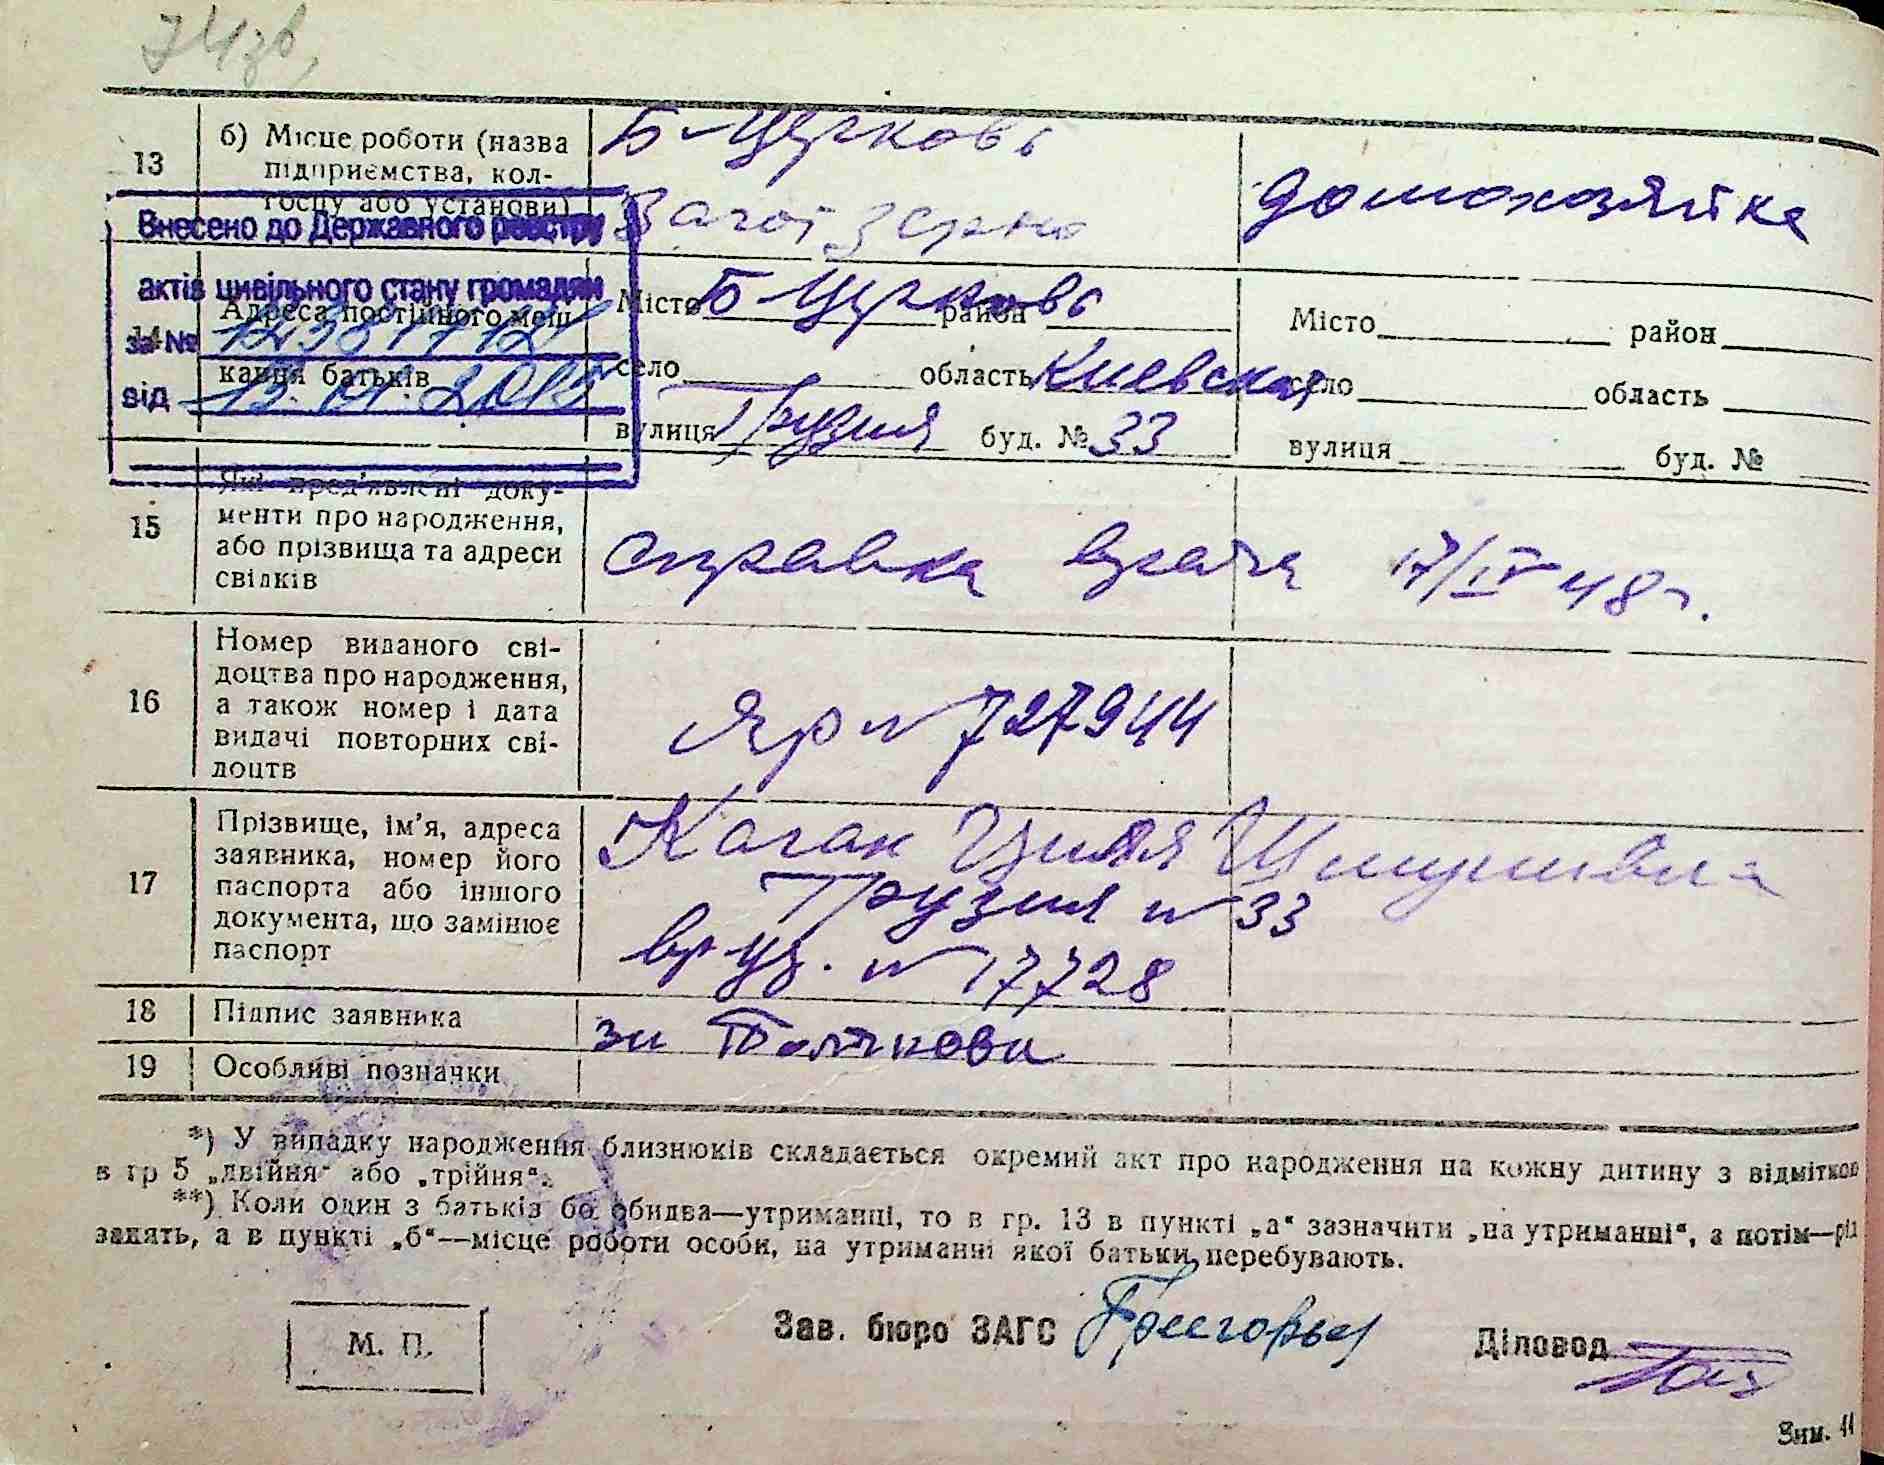 13
б) Місце роботи (назва
підприємства, кол-
госпу або установи)
Б-Церковь
Загот зерно
домохозяйка
Внесено до Державного реєстру
актів цивільного стану громадян
за №
від
14
Адреса постійного меш
кання батьків
Місто Б Церковь район
село область Киевская
вулиця Грузия буд. № 33
Місто район
село область
вулиця буд. №
15
Які пред'явлені доку-
менти про народження,
або прізвища та адреси
свідків
справка врача 17/IV 48 г.
16
Номер виданого сві-
доцтва про народження,
а також номер і дата
видачі повторних сві-
доцтв
№ 727944
17
Прізвище, ім'я, адреса
заявника, номер його
паспорта або іншого
документа, що замінює
паспорт
Каган Циля
Грузия № 33
вр уд. № 17728
18
Підпис заявника
19
Особливі позначки
*) У випадку народження близнюків складається окремий акт про народження на кожну дитину з відміткою
в гр 5 „двійня" або „трійня".
**) Коли один з батьків бо обидва—утриманці, то в гр. 13 в пункті „а" зазначити „на утриманні", а потім—рід
занять, а в пункті „б"—місце роботи особи, на утриманні якої батьки перебувають.
М. П.
Зав. бюро ЗАГС
Діловод
Зим. 11